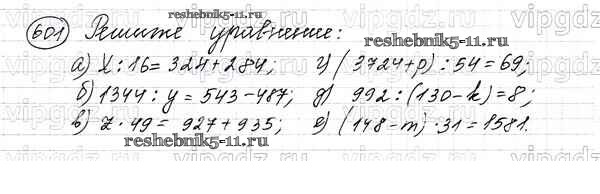 601 Решите уравнение:
reshebnik5-11.ru
а) x : 16 = 324 + 284; г) (3724 + p) : 54 = 69;
б) 1344 : y = 543 - 487; д) 992 : (130 - k) = 8;
в) z · 49 = 927 + 935; е) (148 - m) · 31 = 1581.
reshebnik5-11.ru